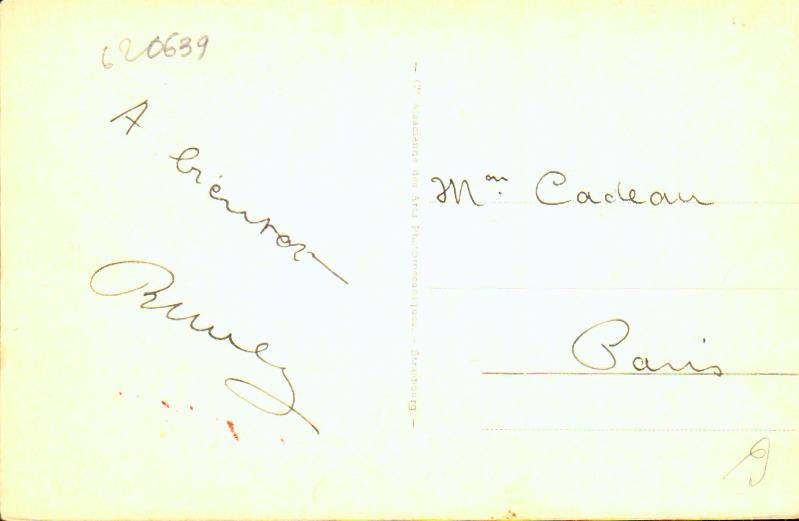 620639
A
bientot
Cie Alsacienne des Arts Photomécaniques. - Strasbourg
Mme Cadeau
Paris